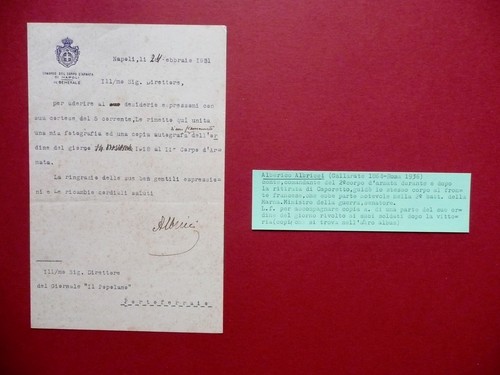 COMANDO DEL CORPO D'ARMATA
DI NAPOLI
IL GENERALE
Napoli, li 24 Febbraio 1931
Ill/mo Sig. Direttore,
per aderire al desiderio espressomi con
sua cortese del 5 corrente, Le rimetto qui unita
una mia fotografia ed una copia autografa dell'or
dine del giorno 1918 al II° Corpo d'Ar
mata.
La ringrazio delle sue ben gentili espressio
ni e Le ricambio cordiali saluti
Albricci
Ill/mo Sig. Direttore
del Giornale "Il Popolano"
Portoferraio
Alberico Albricci (Gallarate 1864-Roma 1936)
Gen., comandante del 2°corpo d'armata durante e dopo
la ritirata di Caporetto, guidò lo stesso corpo al fronte
francese, che ebbe parte notevole nella 2° batt. della
Marna, Ministro della guerra, senatore.
L.f. per accompagnare copia a. di una parte del suo or-
dine del giorno rivolto ai suoi soldati dopo la vitto-